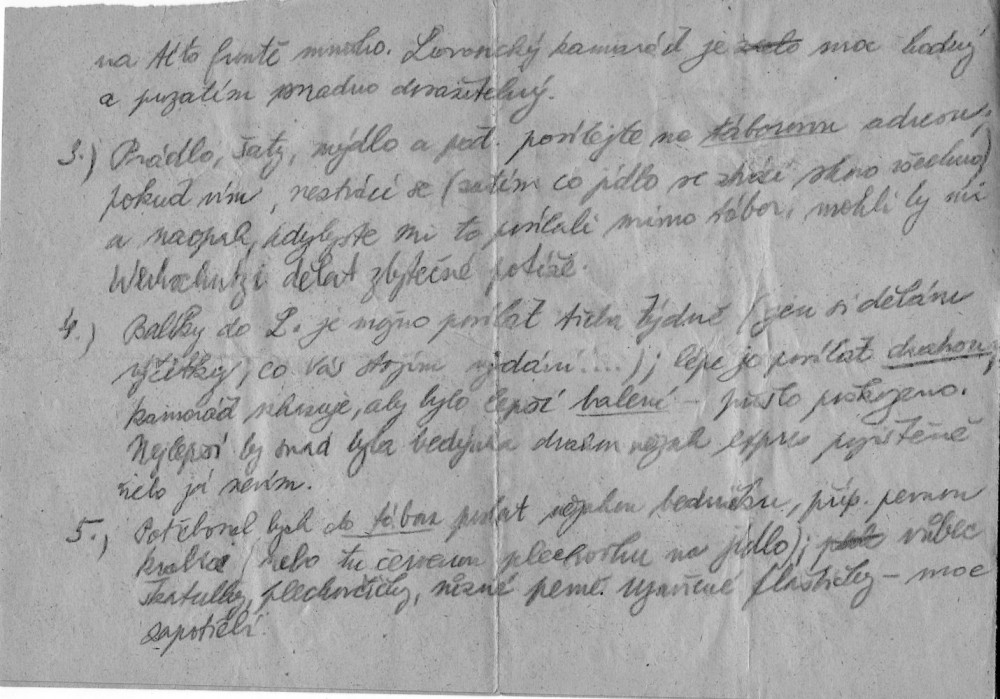 na této frontě mnoho. Lovonický kamarád je moc hodný
a prozatím snadno dosažitelný.
3.) Prádlo, šaty, mýdlo a pod. posílejte na táborovou adresu,
pokud vím, neztrácí se (zatím co jídlo se ztrácí skoro všechno)
a naopak, kdybyste mi to posílali mimo tábor, mohli by mi
Werkschutzi dělat zbytečné potíže.
4.) Balíky do L. je možno posílat třeba týdně (jen si dělám
výčitky, co Vás stojím vydání....); lépe je posílat drahou,
kamarád vzkazuje, aby bylo lepší balení – přišlo poškozeno.
Nejlepší by snad byla bedýnka drahou nějak expres pojištěně
nebo já nevím.
5.) Potřeboval bych do tábora poslat nějakou bedničku, příp. pevnou
krabici (nebo tu červenou plechovku na jídlo); vůbec
škatulky, plechovčičky, různé pevné flaštičky – moc
zapotřebí.